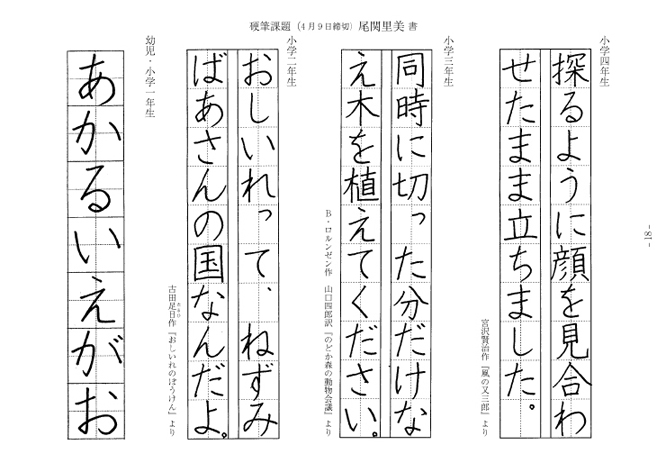 硬筆課題（4月9日締切）尾関里美 書
小学四年生
探るように顔を見合わ
せたまま立ちました。
宮沢賢治作『風の又三郎』より
小学三年生
同時に切った分だけな
え木を植えてください。
B・ロルンゼン作 山口四郎訳『のどか森の動物会議』より
小学二年生
おしいれって、ねずみ
ばあさんの国なんだよ。
古田足日作『おしいれのぼうけん』より
幼児・小学一年生
あかるいえがお
- 81 -